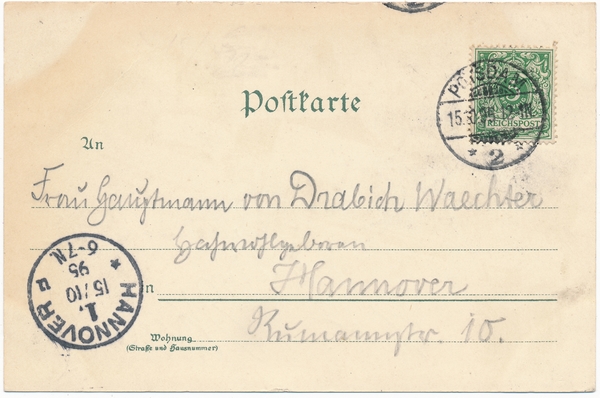 Postkarte
POTSDAM
15.10.95
REICHSPOST
* 2 *
An
Frau Hauptmann von Drabich Waechter
Hochwohlgeboren
in Hannover
Wohnung
(Straße und Hausnummer)
Rumannstr. 10.
HANNOVER
1.
F
15/10
95
6-7N.